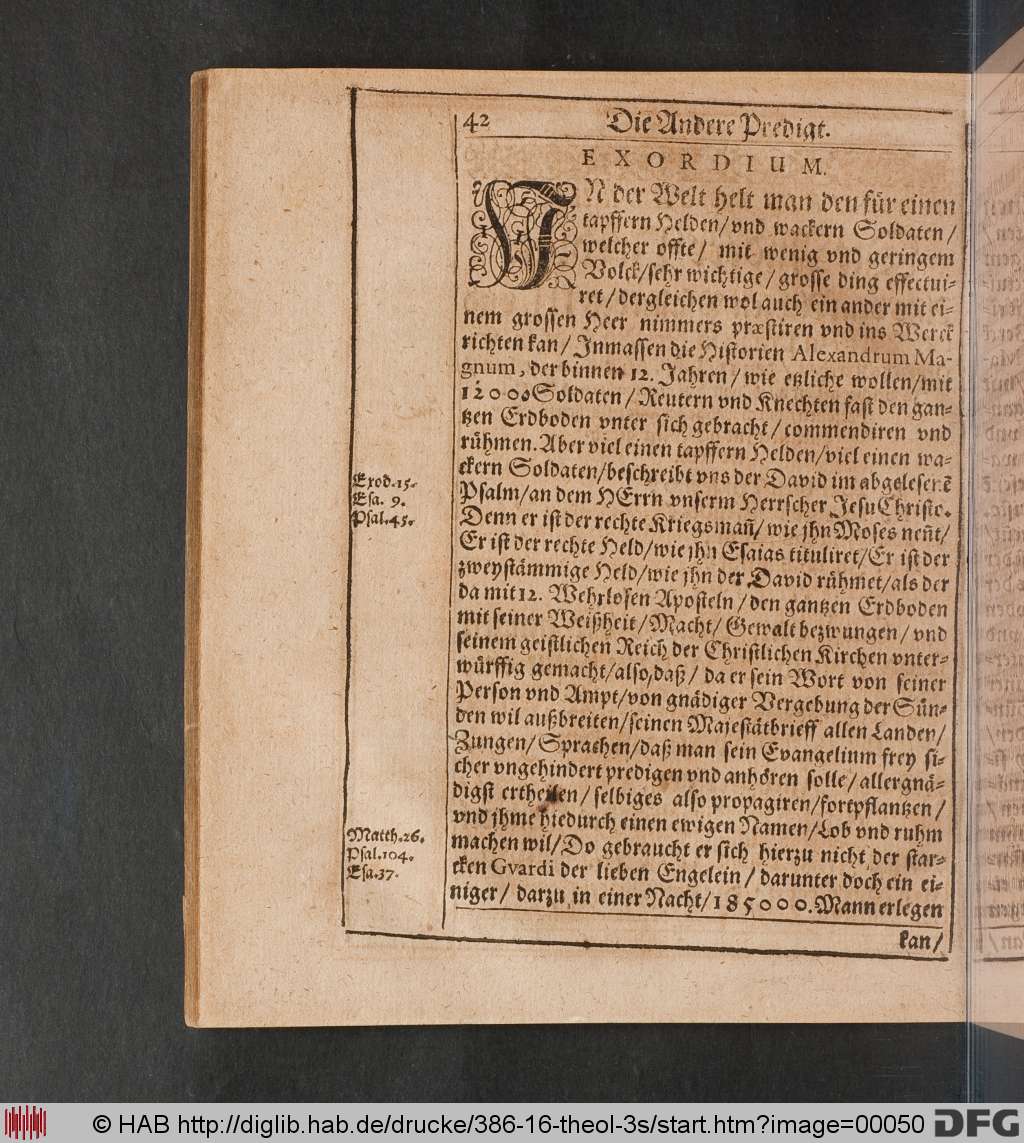 42 Die Andere Predigt.
EXORDIUM.
IN der Welt helt man den für einen
tapffern Helden/ vnd wackern Soldaten/
welcher offte/ mit wenig vnd geringem
Volck/sehr wichtige/ grosse ding effectui-
ret/ dergleichen wol auch ein ander mit ei-
nem grossen Heer nimmers præstiren vnd ins Werck
richten kan/ Inmassen die Historien Alexandrum Ma-
gnum, der binnen 12. Jahren/ wie etzliche wollen/mit
12000. Soldaten/ Reutern vnd Knechten fast den gan-
tzen Erdboden vnter sich gebracht/ commendiren vnd
rühmen. Aber viel einen tapffern Helden/viel einen wa-
ckern Soldaten/beschreibt vns der David im abgelesenẽ
Psalm/an dem HErrn vnserm Herrscher Jesu Christo.
Denn er ist der rechte Kriegsmañ/ wie jhn Moses neñt/
Er ist der rechte Held/wie jhn Esaias tituliret/Er ist der
zweystämmige Held/wie jhn der David rühmet/als der
da mit 12. Wehrlosen Aposteln/ den gantzen Erdboden
mit seiner Weißheit/Macht/ Gewalt bezwungen/ vnd
seinem geistlichen Reich der Christlichen Kirchen vnter-
würffig gemacht/also, daß/ da er sein Wort von seiner
Person vnd Ampt/von gnädiger Vergebung der Sün-
den wil außbreiten/seinen Majestätbrieff allen Landen/
Zungen/Sprachen/daß man sein Evangelium frey si-
cher vngehindert predigen vnd anhören solle/allergnä-
digst ertheilen/ selbiges also propagiren/fortpflantzen/
vnd jhme hiedurch einen ewigen Namen/Lob vnd ruhm
machen wil/Do gebraucht er sich hierzu nicht der star-
cken Gvardi der lieben Engelein/ darunter doch ein ei-
niger/ darzu in einer Nacht/185000. Mann erlegen
kan/
Exod.15.
Esa. 9.
Psal.45.
Matth.26.
Psal.104.
Esa.37.
© HAB http://diglib.hab.de/drucke/386-16-theol-3s/start.htm?image=00050 DFG